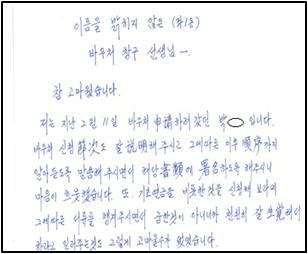 이름을 밝히지 않은 (좌1동)
바우처 창구 선생님 ㅡ.
참 고마웠습니다.
저는 지난 2월 11일 바우처 申請하려 갔던 박 입니다.
바우처 신청 節次도 잘 說明해 주시고 그에따른 이후 順序까지
알아듣도록 말씀해 주시면서 해당 書類에 署名하도록 해주시니
마음이 흐뭇했습니다. 또. 기초연금을 비롯한것을 신청해 보라며
그에따른 서류를 챙겨주시면서 급한것이 아니니까 천천히 잘 生覺해서
하라고 일러주는것도 그렇게 고마울수가 없었습니다.